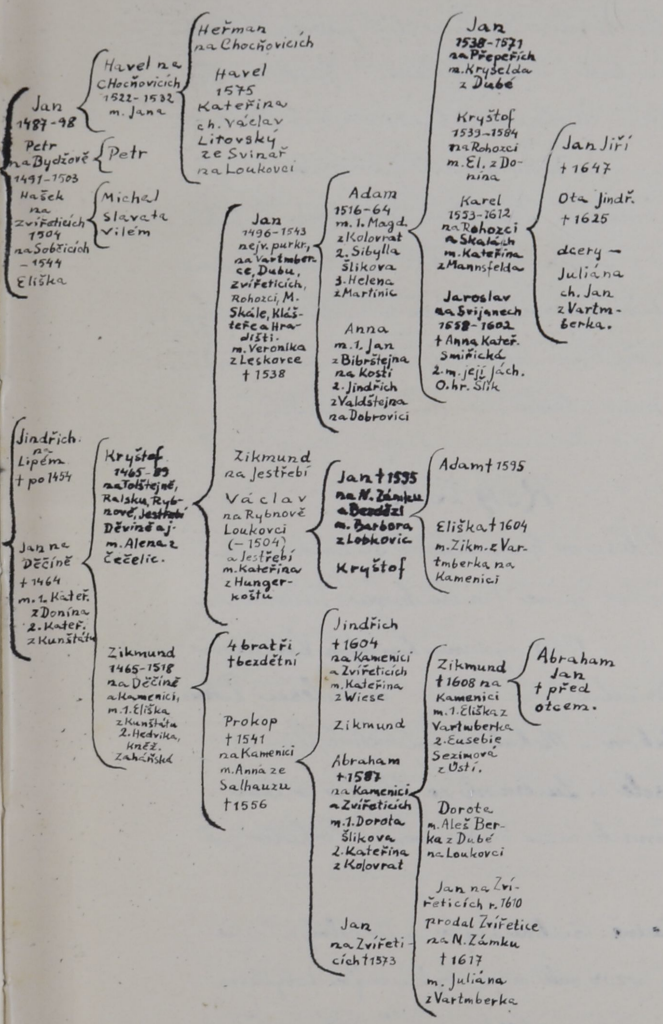 Jan
1487-98
Petr
na Bydžově
1491-1503
Hašek
na
Zvířeticích
1504
na Sobčicích
- 1544
Eliška
Havel na
Chocňovicích
1522-1532
m. Jana
Petr
Michal
Slavata
Vilém
Heřman
na Chocňovicích
Havel
1575
Kateřina
ch. Václav
Litovský
ze Svinař
na Loukovci
Jindřich
na
Lipém
† po 1454
Jan na
Děčíně
† 1464
m. 1. Kateř.
z Donína
2. Kateř.
z Kunštátu
Kryštof
1465-89
na Tolštejně,
Ralsku, Ryb-
nově, Jestřebí
Děvíně aj.
m. Alena z
Čečelic.
Zikmund
1465-1518
na Děčíně
a Kamenici,
m. 1. Eliška
z Kunštátu
2. Hedvika,
kněž.
Zaháňská
Jan
1496-1543
nejv. purkr,
na Vartmber-
ce, Dubu,
Zvířeticích,
Rohozci, M.
Skále, Kláš-
teře a Hra-
dišti.
m. Veronika
z Leskovce
† 1538
Zikmund
na Jestřebí
Václav
na Rybnově
Loukovci
(- 1504)
a Jestřebí
m. Kateřina
z Hunger-
koštu
4 bratři
† bezdětní
Prokop
† 1541
na Kamenici
m. Anna ze
Salhauzu
† 1556
Adam
1516-64
m. 1. Magd.
z Kolovrat
2. Sibylla
Šlikova
3. Helena
z Martinic
Anna
m. 1. Jan
z Bibrštejna
na Kosti
2. Jindřich
z Valdštejna
na Dobrovici
Jan † 1595
na N. Zámku
a Bezdězi
m. Barbora
z Lobkovic
Kryštof
Jindřich
† 1604
na Kamenici
a Zvířeticích
m. Kateřina
z Wiese
Zikmund
Abraham
† 1587
na Kamenici
a Zvířeticích
m. 1. Dorota
Šlikova
2. Kateřina
z Kolovrat
Jan
na Zvířeti-
cích † 1573
Jan
1538-1571
na Přepeřích
m. Kryšelda
z Dubé
Kryštof
1539-1584
na Rohozci
m. El. z Do-
nína
Karel
1553-1612
na Rohozci
a Skalách
m. Kateřina
z Mannsfelda
Jaroslav
na Svijanech
1558-1602
† Anna Kateř.
Smiřická
2. m. její Jách.
O. hr. Šlik
Adam † 1595
Eliška † 1604
m. Zikm. z Var-
tmberka na
Kamenici
Zikmund
† 1608 na
Kamenici
m. 1. Eliška z
Vartmberka
2. Eusebie
Sezimová
z Ústí.
Dorota
m. Aleš Ber-
ka z Dubé
na Loukovci
Jan na Zví-
řeticích r. 1610
prodal Zvířetice
na N. Zámku
† 1617
m. Juliána
z Vartmberka
Jan Jiří
† 1647
Ota Jindř.
† 1625
dcery -
Juliána
ch. Jan
z Vartm-
berka.
Abraham
Jan
† před
otcem.